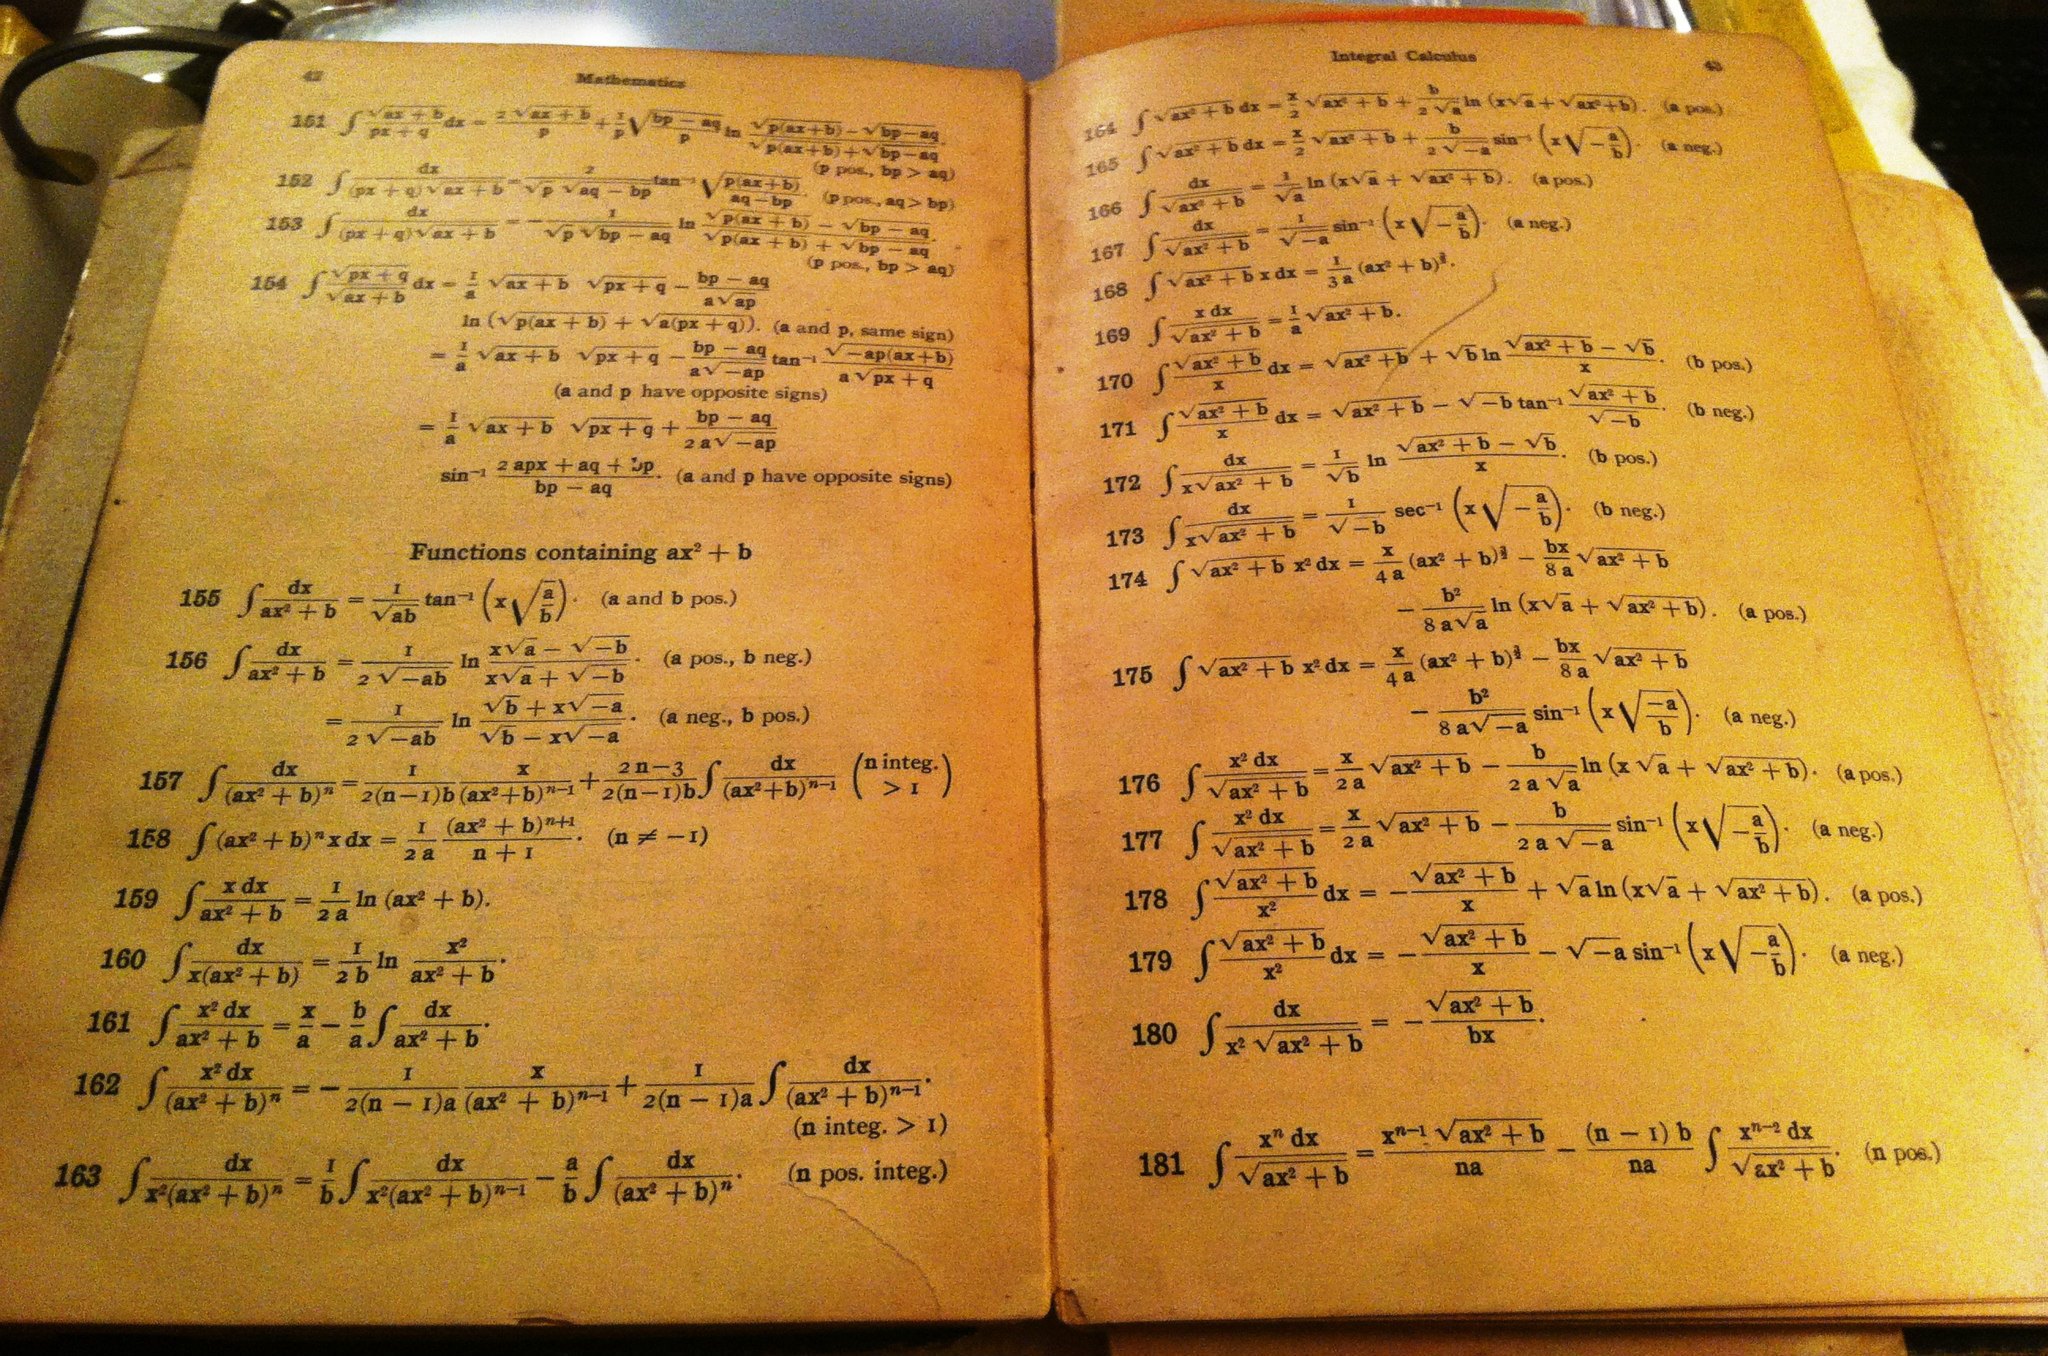 42 Mathematics
151 ∫ √(ax + b)/(px + q) dx = 2√(ax + b)/p + 1/p √((bp − aq)/p) ln (√(p(ax+b)) − √(bp−aq))/(√(p(ax+b)) + √(bp−aq)).
(p pos., bp > aq)
152 ∫ dx/((px + q)√(ax + b)) = 2/(√p √(aq − bp)) tan⁻¹ √(p(ax+b)/(aq−bp)). (p pos., aq > bp)
153 ∫ dx/((px + q)√(ax + b)) = − 1/(√p √(bp − aq)) ln (√(p(ax + b)) − √(bp − aq))/(√(p(ax + b)) + √(bp − aq)).
(p pos., bp > aq)
154 ∫ √(px + q)/√(ax + b) dx = 1/a √(ax + b) √(px + q) − (bp − aq)/(a√ap)
ln (√(p(ax + b)) + √(a(px + q))). (a and p, same sign)
= 1/a √(ax + b) √(px + q) − (bp − aq)/(a√−ap) tan⁻¹ √(−ap(ax+b))/(a√(px + q))
(a and p have opposite signs)
= 1/a √(ax + b) √(px + q) + (bp − aq)/(2a√−ap)
sin⁻¹ (2apx + aq + bp)/(bp − aq). (a and p have opposite signs)
Functions containing ax² + b
155 ∫ dx/(ax² + b) = 1/√ab tan⁻¹ (x√(a/b)). (a and b pos.)
156 ∫ dx/(ax² + b) = 1/(2√−ab) ln (x√a − √−b)/(x√a + √−b). (a pos., b neg.)
= 1/(2√−ab) ln (√b + x√−a)/(√b − x√−a). (a neg., b pos.)
157 ∫ dx/(ax² + b)ⁿ = 1/(2(n−1)b) x/(ax²+b)ⁿ⁻¹ + (2n−3)/(2(n−1)b) ∫ dx/(ax²+b)ⁿ⁻¹ (n integ. > 1)
158 ∫ (ax² + b)ⁿ x dx = 1/2a (ax² + b)ⁿ⁺¹/(n + 1). (n ≠ −1)
159 ∫ x dx/(ax² + b) = 1/2a ln (ax² + b).
160 ∫ dx/(x(ax² + b)) = 1/2b ln x²/(ax² + b).
161 ∫ x² dx/(ax² + b) = x/a − b/a ∫ dx/(ax² + b).
162 ∫ x² dx/(ax² + b)ⁿ = − 1/(2(n − 1)a) x/(ax² + b)ⁿ⁻¹ + 1/(2(n − 1)a) ∫ dx/(ax² + b)ⁿ⁻¹.
(n integ. > 1)
163 ∫ dx/(x²(ax² + b)ⁿ) = 1/b ∫ dx/(x²(ax² + b)ⁿ⁻¹) − a/b ∫ dx/(ax² + b)ⁿ. (n pos. integ.)
Integral Calculus 43
164 ∫ √(ax² + b) dx = x/2 √(ax² + b) + b/(2√a) ln (x√a + √(ax²+b)). (a pos.)
165 ∫ √(ax² + b) dx = x/2 √(ax² + b) + b/(2√−a) sin⁻¹ (x√(−a/b)). (a neg.)
166 ∫ dx/√(ax² + b) = 1/√a ln (x√a + √(ax² + b)). (a pos.)
167 ∫ dx/√(ax² + b) = 1/√−a sin⁻¹ (x√(−a/b)). (a neg.)
168 ∫ √(ax² + b) x dx = 1/3a (ax² + b)^(3/2).
169 ∫ x dx/√(ax² + b) = 1/a √(ax² + b).
170 ∫ √(ax² + b)/x dx = √(ax² + b) + √b ln (√(ax² + b) − √b)/x. (b pos.)
171 ∫ √(ax² + b)/x dx = √(ax² + b) − √−b tan⁻¹ √(ax² + b)/√−b. (b neg.)
172 ∫ dx/(x√(ax² + b)) = 1/√b ln (√(ax² + b) − √b)/x. (b pos.)
173 ∫ dx/(x√(ax² + b)) = 1/√−b sec⁻¹ (x√(−a/b)). (b neg.)
174 ∫ √(ax² + b) x² dx = x/4a (ax² + b)^(3/2) − bx/8a √(ax² + b)
− b²/(8a√a) ln (x√a + √(ax² + b)). (a pos.)
175 ∫ √(ax² + b) x² dx = x/4a (ax² + b)^(3/2) − bx/8a √(ax² + b)
− b²/(8a√−a) sin⁻¹ (x√(−a/b)). (a neg.)
176 ∫ x² dx/√(ax² + b) = x/2a √(ax² + b) − b/(2a√a) ln (x√a + √(ax² + b)). (a pos.)
177 ∫ x² dx/√(ax² + b) = x/2a √(ax² + b) − b/(2a√−a) sin⁻¹ (x√(−a/b)). (a neg.)
178 ∫ √(ax² + b)/x² dx = − √(ax² + b)/x + √a ln (x√a + √(ax² + b)). (a pos.)
179 ∫ √(ax² + b)/x² dx = − √(ax² + b)/x − √−a sin⁻¹ (x√(−a/b)). (a neg.)
180 ∫ dx/(x²√(ax² + b)) = − √(ax² + b)/bx.
181 ∫ xⁿ dx/√(ax² + b) = xⁿ⁻¹√(ax² + b)/na − (n − 1)b/na ∫ xⁿ⁻² dx/√(ax² + b). (n pos.)